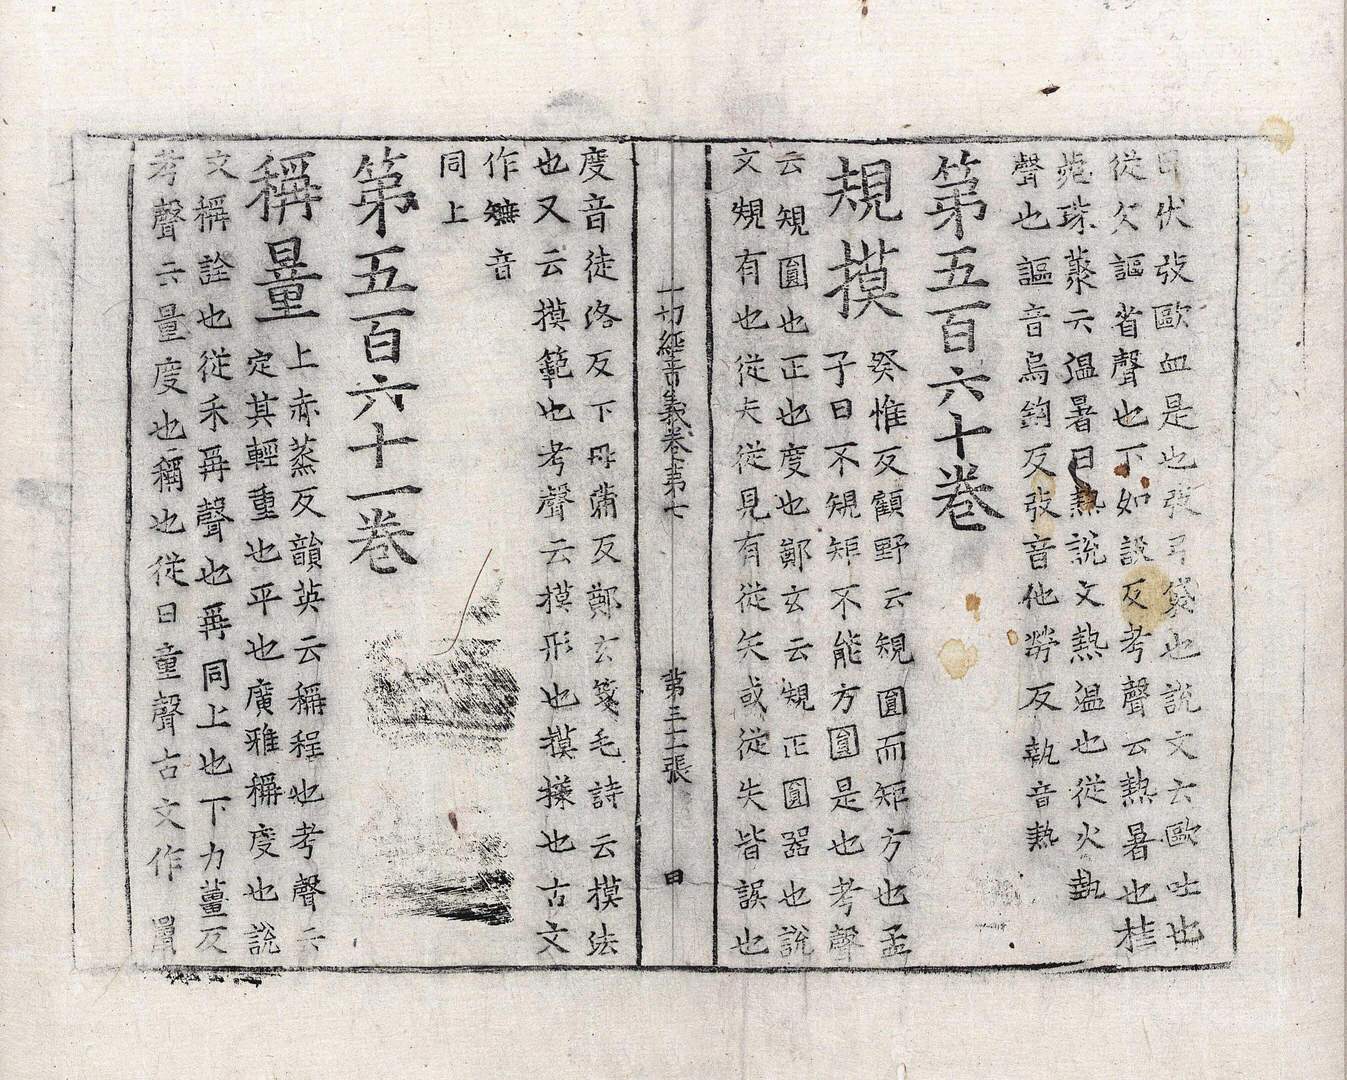 伏弢歐血是也弢弓袋也說文云歐吐也
從欠謳省聲也下如說反考聲云熱暑也桂
苑珠藂云溫暑曰熱說文熱溫也從火埶
聲也謳音烏鉤反弢音他勞反執音熱
第五百六十卷
規摸
癸惟反顧野云規圓而矩方也孟
子曰不規矩不能方圓是也考聲
云規圓也正也度也鄭玄云規正圓器也說
文規有也從夫從見有從矢或從失皆誤也
一切經音義卷第七 第三十二張 日
度音徒洛反下母蒲反鄭玄箋毛詩云模法
也又云摸範也考聲云摸形也摸㨾也古文
作橅音
同上
第五百六十一卷
稱量
上赤蒸反韻英云稱程也考聲云
定其輕重也平也廣雅稱度也說
文稱詮也從禾爯聲也爯同上也下力薑反
考聲云量度也稱也從日童聲古文作量